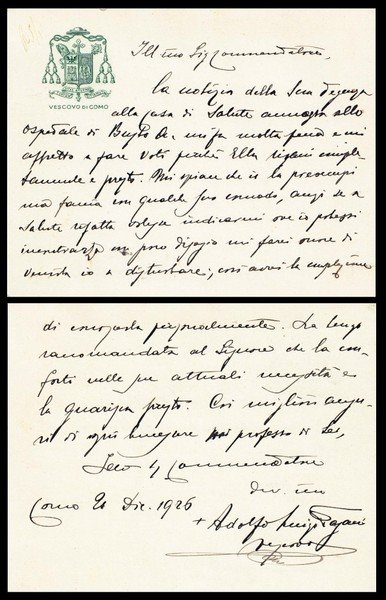 VESCOVO DI COMO
Ill mo Sig Commendatore,
La notizia della Sua degenza
alla Casa di Salute annessa allo
Ospedale di Busto A. mi fa molta pena e mi
affretto a fare voti perché Ella
e presto. Mi spiace che io la preoccupi
ma faccia con quale Suo comodo, anzi se a
Salute rifatta indicarmi ove io potessi
un poco disagio mi farei onore di
venirla io a disturbare; così avrei la
di personalmente. La tengo
raccomandata al Signore che la con-
forti nelle attuali necessità e
la guarisca presto. Coi migliori augu-
ri di ogni bene professo di Lei,
Commendatore
dev. mo
Como 21 Dic. 1926
+ Adolfo Luigi Pagani
Vescovo